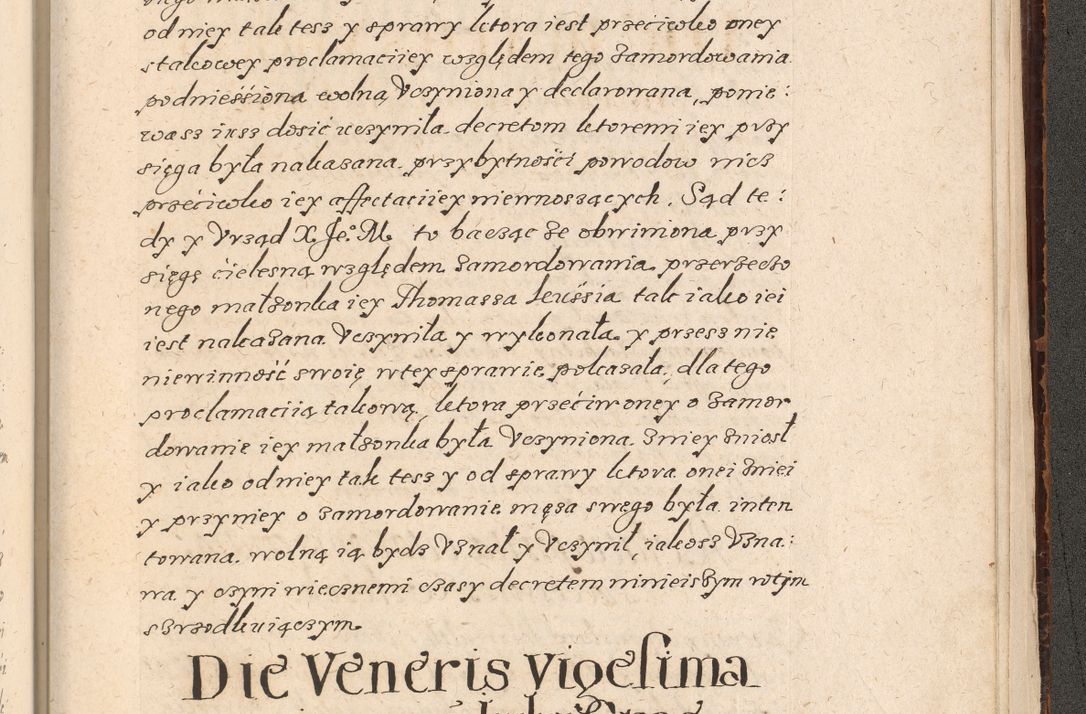 od niey tak tesz y sprawy ktora iest przeciwko oney
stakowey proclamaciiey względem tego zamordowania
podnieśsiona wolną Vczyniona y declarowana, ponie:
wasz iusz dosić uczyniła decretom ktoremi iey przy
sięga była nakazana przybytności powodow nicz
przećiwko iey affectaciiey niewnoszących. Sąd te:
dy y Vrząd X. Je.o M. to bacząc że obwiniona przy
sięgę ćielesną względem zamordowania przerzeczo
nego małżonka iey Thomassa Leuśsia tak iako iei
iest nakazana Vczyniła y wykonała y przesz nie
niewinność swoię wtey sprawie pokazała, dla tego
proclamaciią takową, ktora przećiw oney o zamor
dowanie iey małżonka była Vczyniona zniey zniosł
y iako od niey tak tesz y od sprawy ktora onei zniei
y przyniey o zamordowanie męża swego była inten
towana wolną ią bydz Vznał y Vczynił, iakosz Vzna:
wa y czyni wiecznemi czasy decretem ninieiszym wtym
szrzodkuiączym
Die Veneris Vigesima